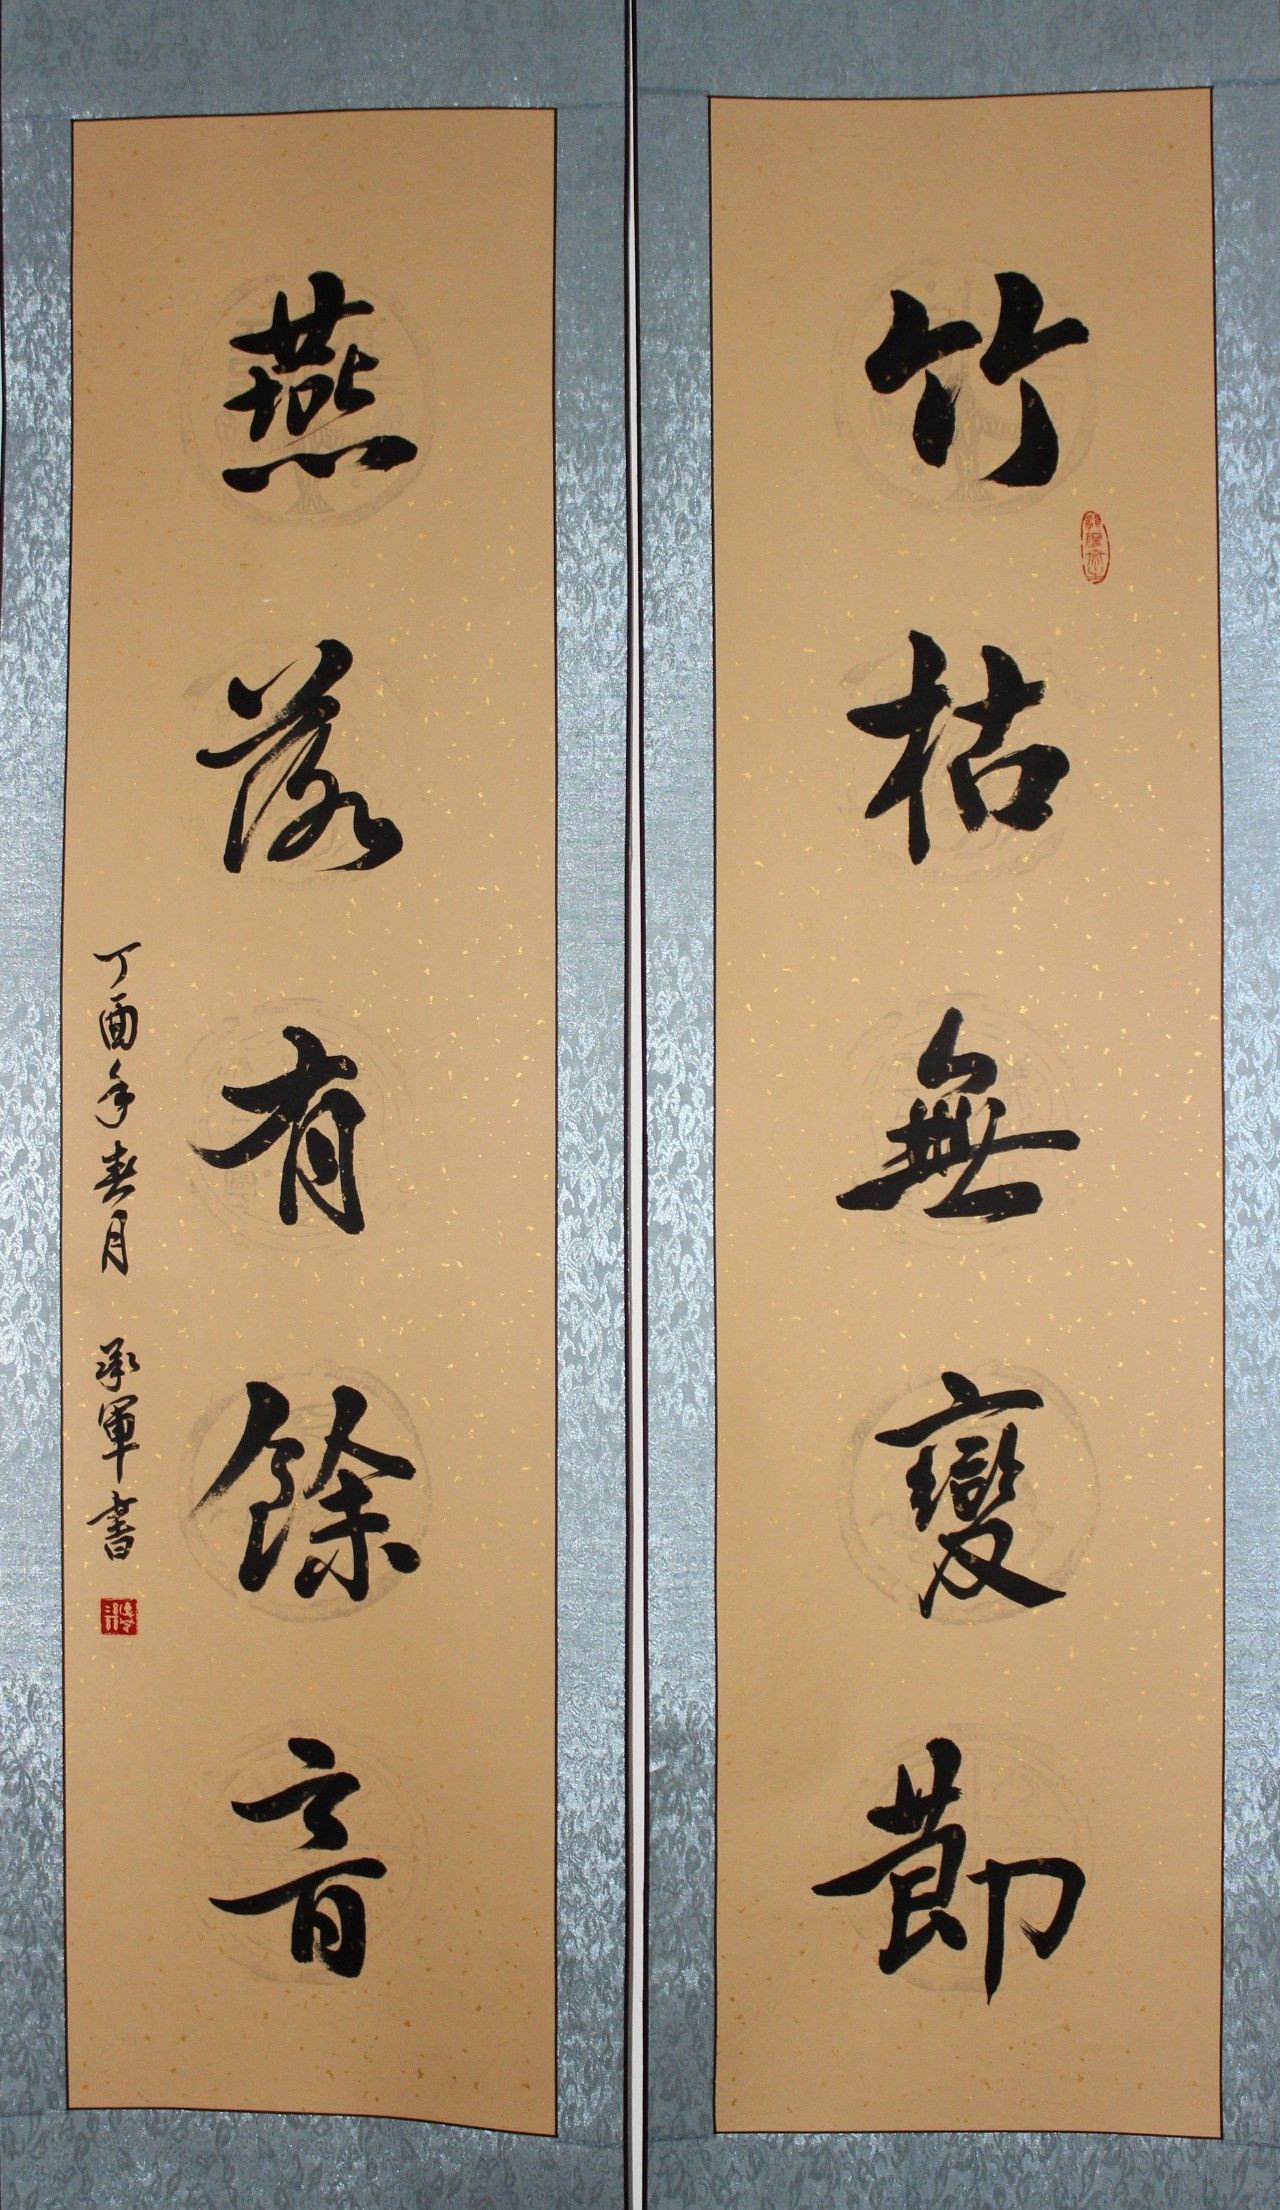 竹枯無變節
燕落有餘音
丁酉年春月 承軍書